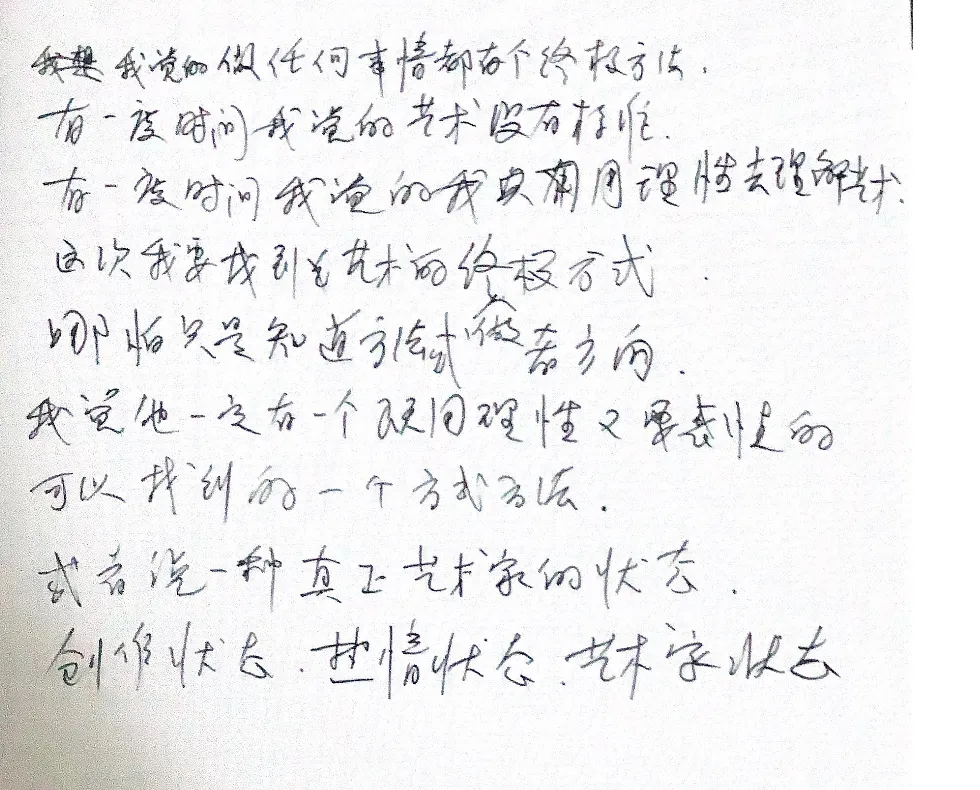 我觉的做任何事情都有个终极方法.
有一度时间我觉的艺术没有标准.
有一度时间我觉的我只有用理性去理解艺术.
这次我要找到艺术的终极方式.
哪怕只是知道方法或做者方向.
我觉他一定有一个理性又要感性的
可以找到的一个方式方法.
或者说一种真正艺术家的状态.
创作状态.热情状态.艺术家状态